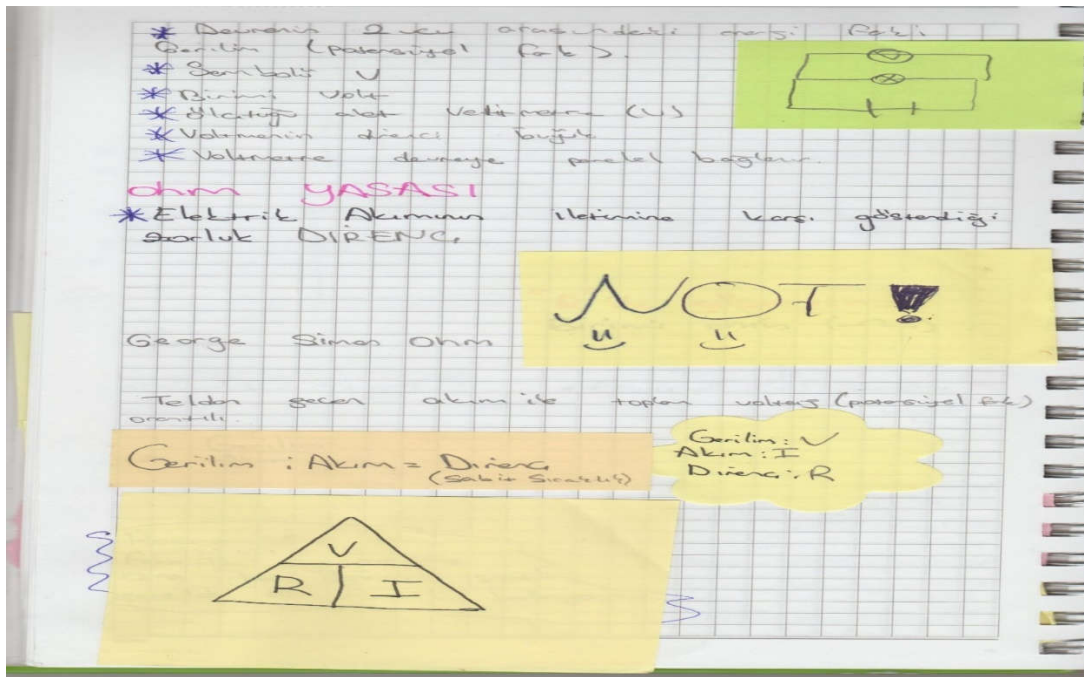 * Devrenin 2 ucu arasındaki enerji farkı
Gerilim (potansiyel fark)
* Sembolü V
* Birimi volt
* ölçtüğü alet Voltmetre (V)
* Voltmenin direnci büyük
* Voltmetre devreye paralel bağlanır.
ohm YASASI
* Elektrik Akımının iletimine karşı gösterdiği
zorluk DİRENÇ
NOT !
George Simon Ohm
Telden geçen akım ile toplam voltaj (potansiyel fark)
orantılı.
Gerilim : Akım = Direnç
(Sabit Sıcaklık)
Gerilim : V
Akım : I
Direnç : R
V
R I